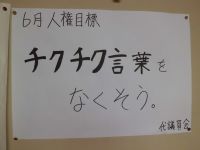 6月人権目標
チクチク言葉を
なくそう。
代議員会